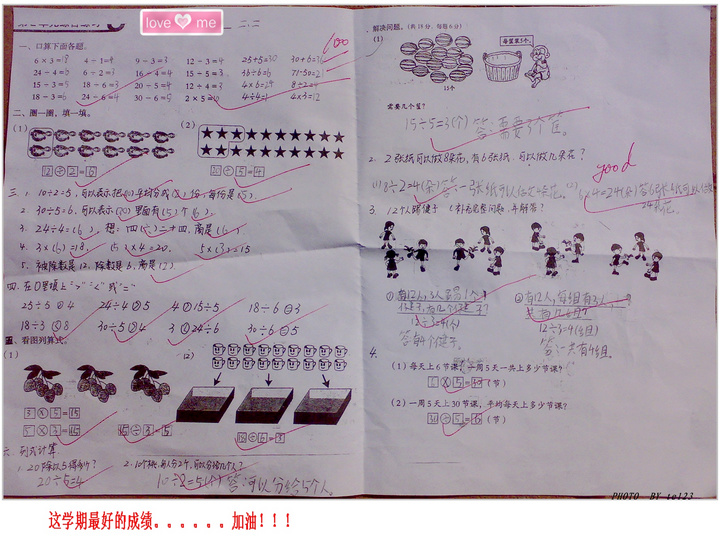 love me
一、口算下面各题。
100
6×3=18 4÷1=4 9÷3=3 12÷3=4 25+5=30 30+6=36
24÷4=6 6÷2=3 16÷4=4 15÷5=3 36÷6=6
15÷3=5 18÷6=3 20÷5=4 12÷3=4 4×6=24 8÷2=4
18÷3=6 24÷6=4 30÷6=5 2×5=10 4÷4=1 4×3=12
二、圈一圈，填一填。
(1) (2)
12÷2=6 20÷5=4
三、1. 10÷2=5，可以表示把(10)平均分成(2)份，每份是(5)。
2. 30÷5=6，可以表示(30)里面有(5)个(6)。
3. 24÷4=(6)，想：四(六)二十四，商是(6)。
4. 3×(6)=18 (5)×4=20 5×(3)=15
5. 被除数是12，除数是6，商是(2)
四、在○里填上“>”“<”或“=”
25÷5 4 24÷4 5 4 15÷5 18÷6=3
18÷3 8 30÷5 4 3 24÷6 30÷6=5
五、看图列算式。
(1) (2)
3×5=15
5×3=15 15÷3=5
18÷6=3
六、列式计算
1. 20除以5得多少？ 2. 10个桃，每人分2个，可以分给几个人？
20÷5=4 10÷2=5(个) 答：可以分给5个人。
解决问题。(共18分，每题6分)
(1)
每筐装5个。
15个
需要几个筐？
15÷5=3(个) 答：需要3个筐。
2. 2张纸可以做8朵花，有6张纸，可以做几朵花？
good
6×4=24(朵)
3. 12个人踢毽子（补充完整问题，并解答）
②有12人，每组有3人，
12÷3=4(个) 12÷3=4(组)
答：有4个毽子。 答：一共有4组。
4.
(1) 每天上6节课，一周5天一共上多少节课？
(节)
(2) 一周5天上30节课，平均每天上多少节课？
30÷5=6 (节)
PHOTO BY te123
这学期最好的成绩。。。。。。加油！！！